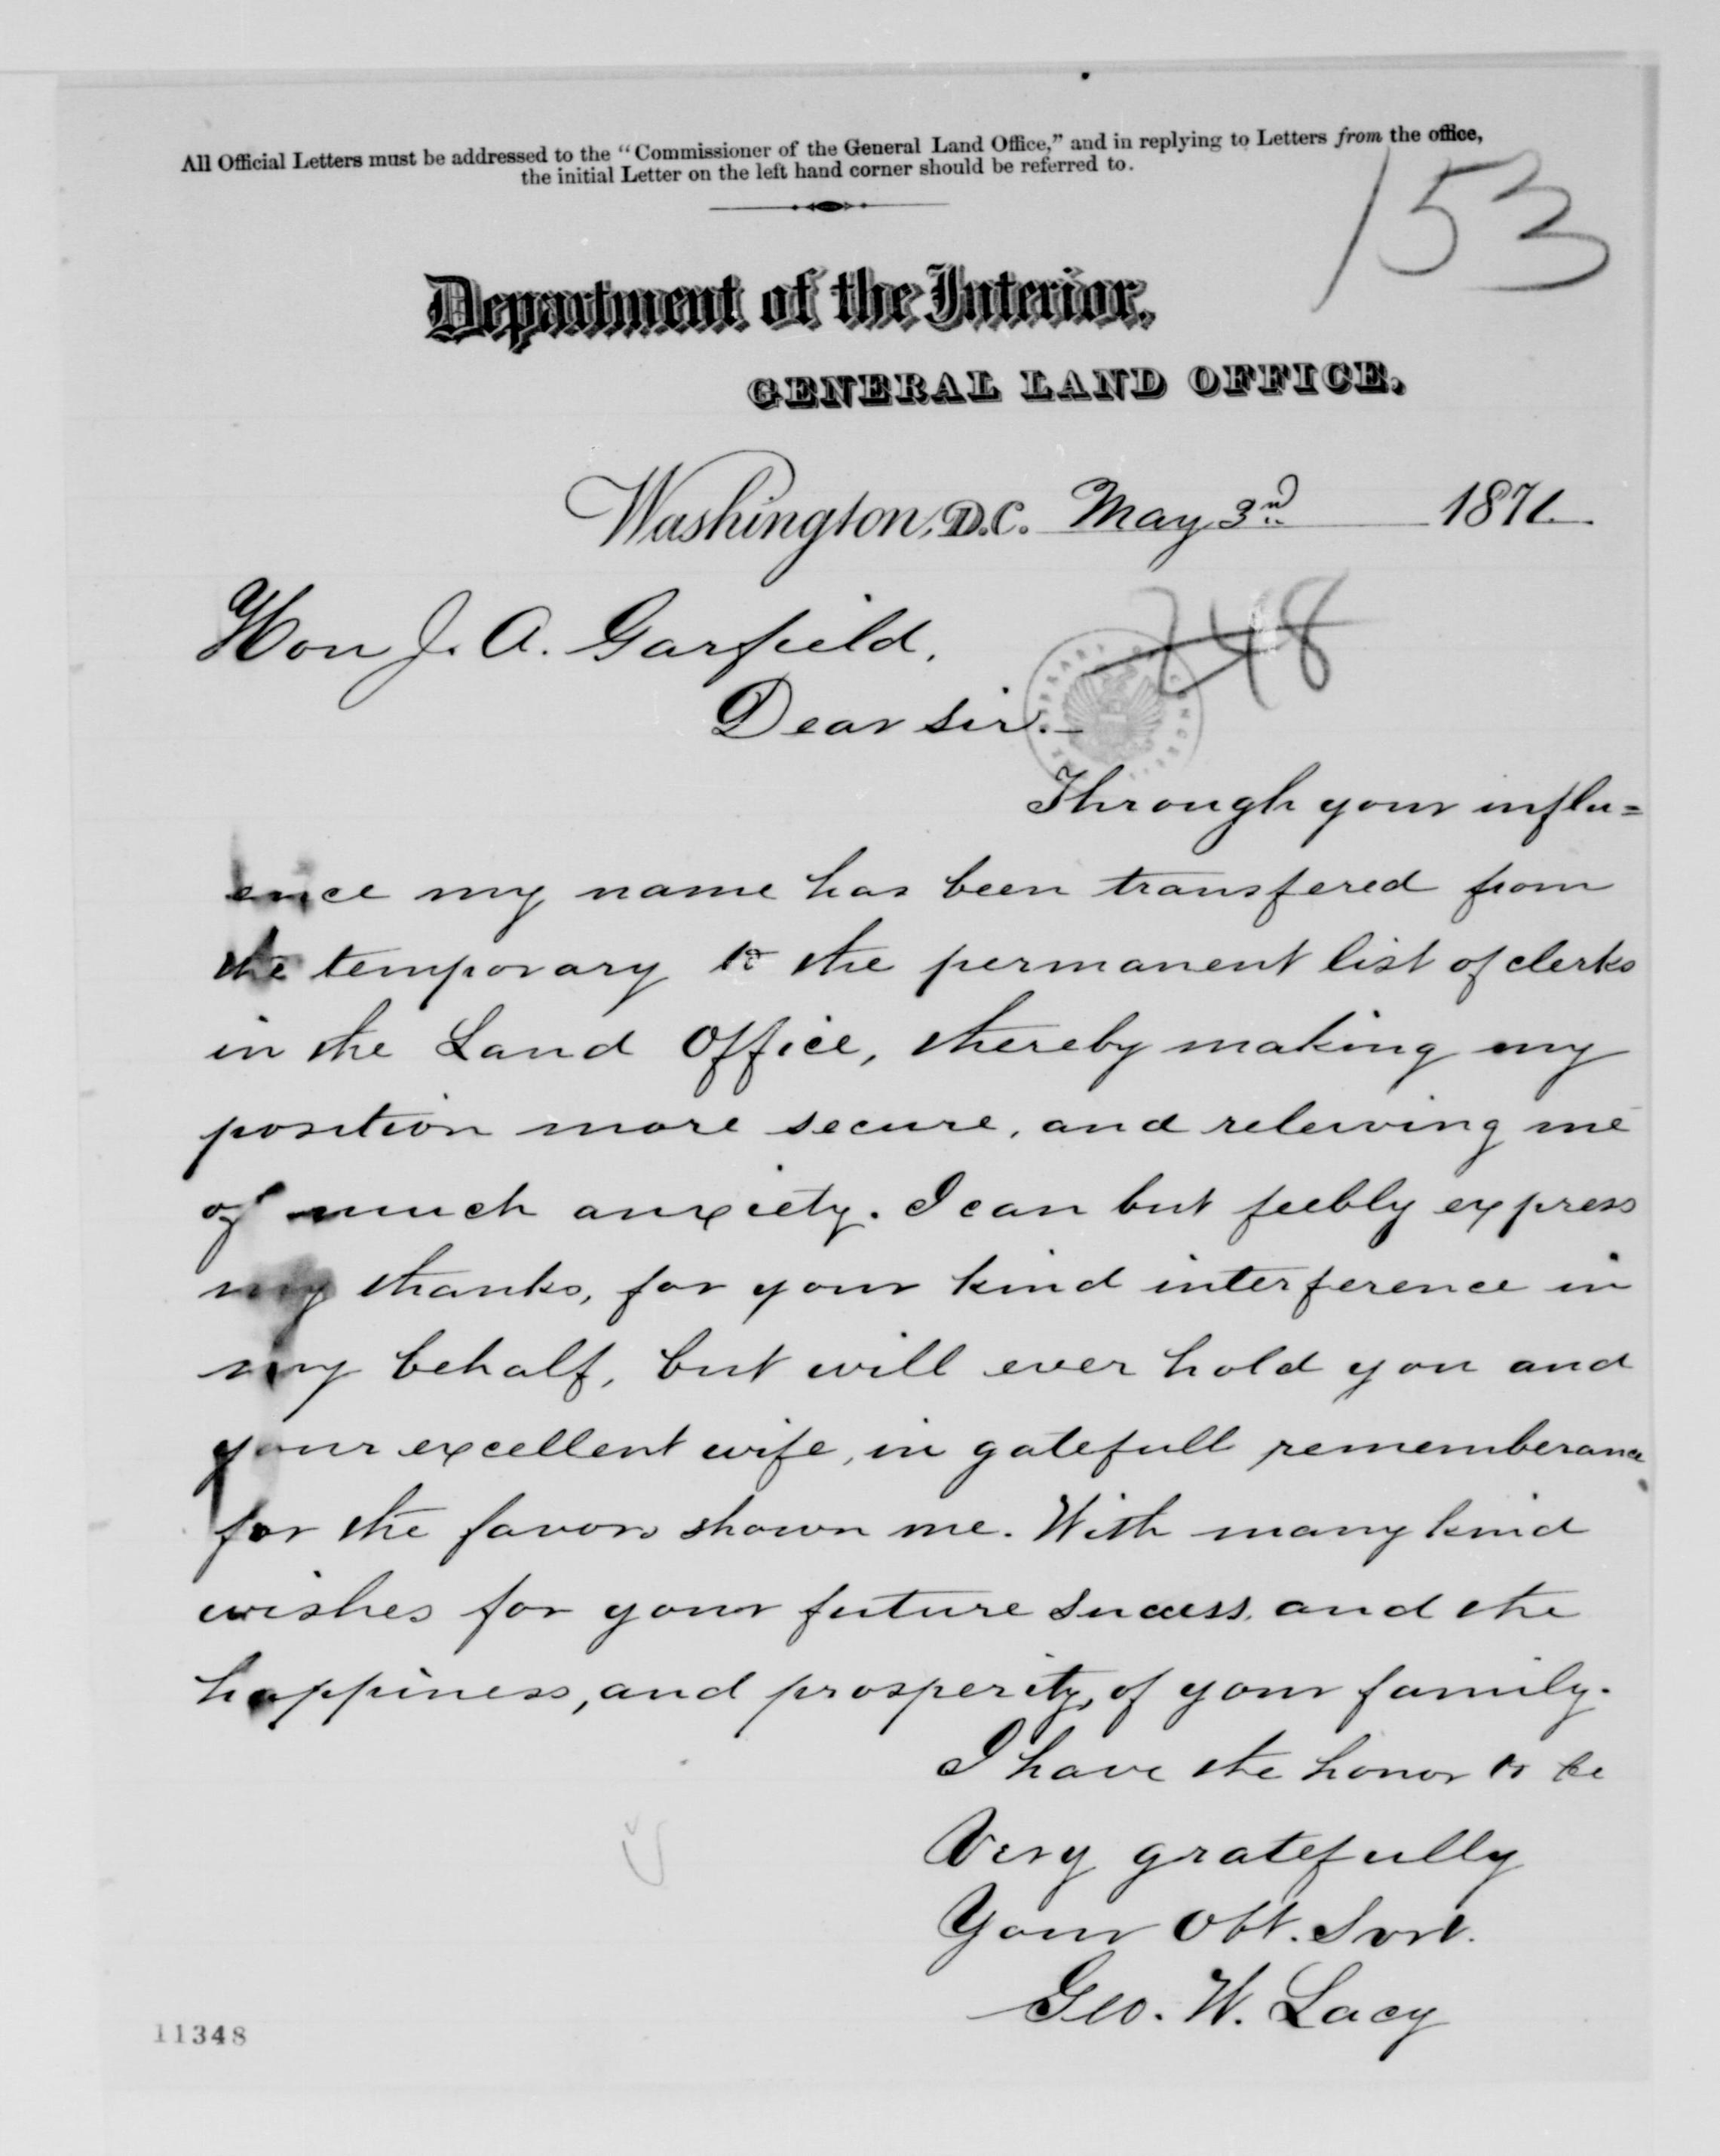 All Official Letters must be addressed to the "Commissioner of the General Land Office," and in replying to Letters from the office,
the initial Letter on the left hand corner should be referred to.
153
Department of the Interior,
GENERAL LAND OFFICE,
Washington, D.C. May 3rd 1871.
Hon J. A. Garfield,
248
Dear sir.—
Through your influ=
ence my name has been transfered from
the temporary to the permanent list of clerks
in the Land Office, thereby making my
position more secure, and releiving me
of much anxiety. I can but feebly express
my thanks, for your kind interference in
my behalf, but will ever hold you and
your excellent wife, in gatefull rememberance
for the favors shown me. With many kind
wishes for your future success, and the
happiness, and prosperity, of your family.
I have the honor to be
Very gratefully
Your Obt. Svrt.
Geo. W. Lacy
11348